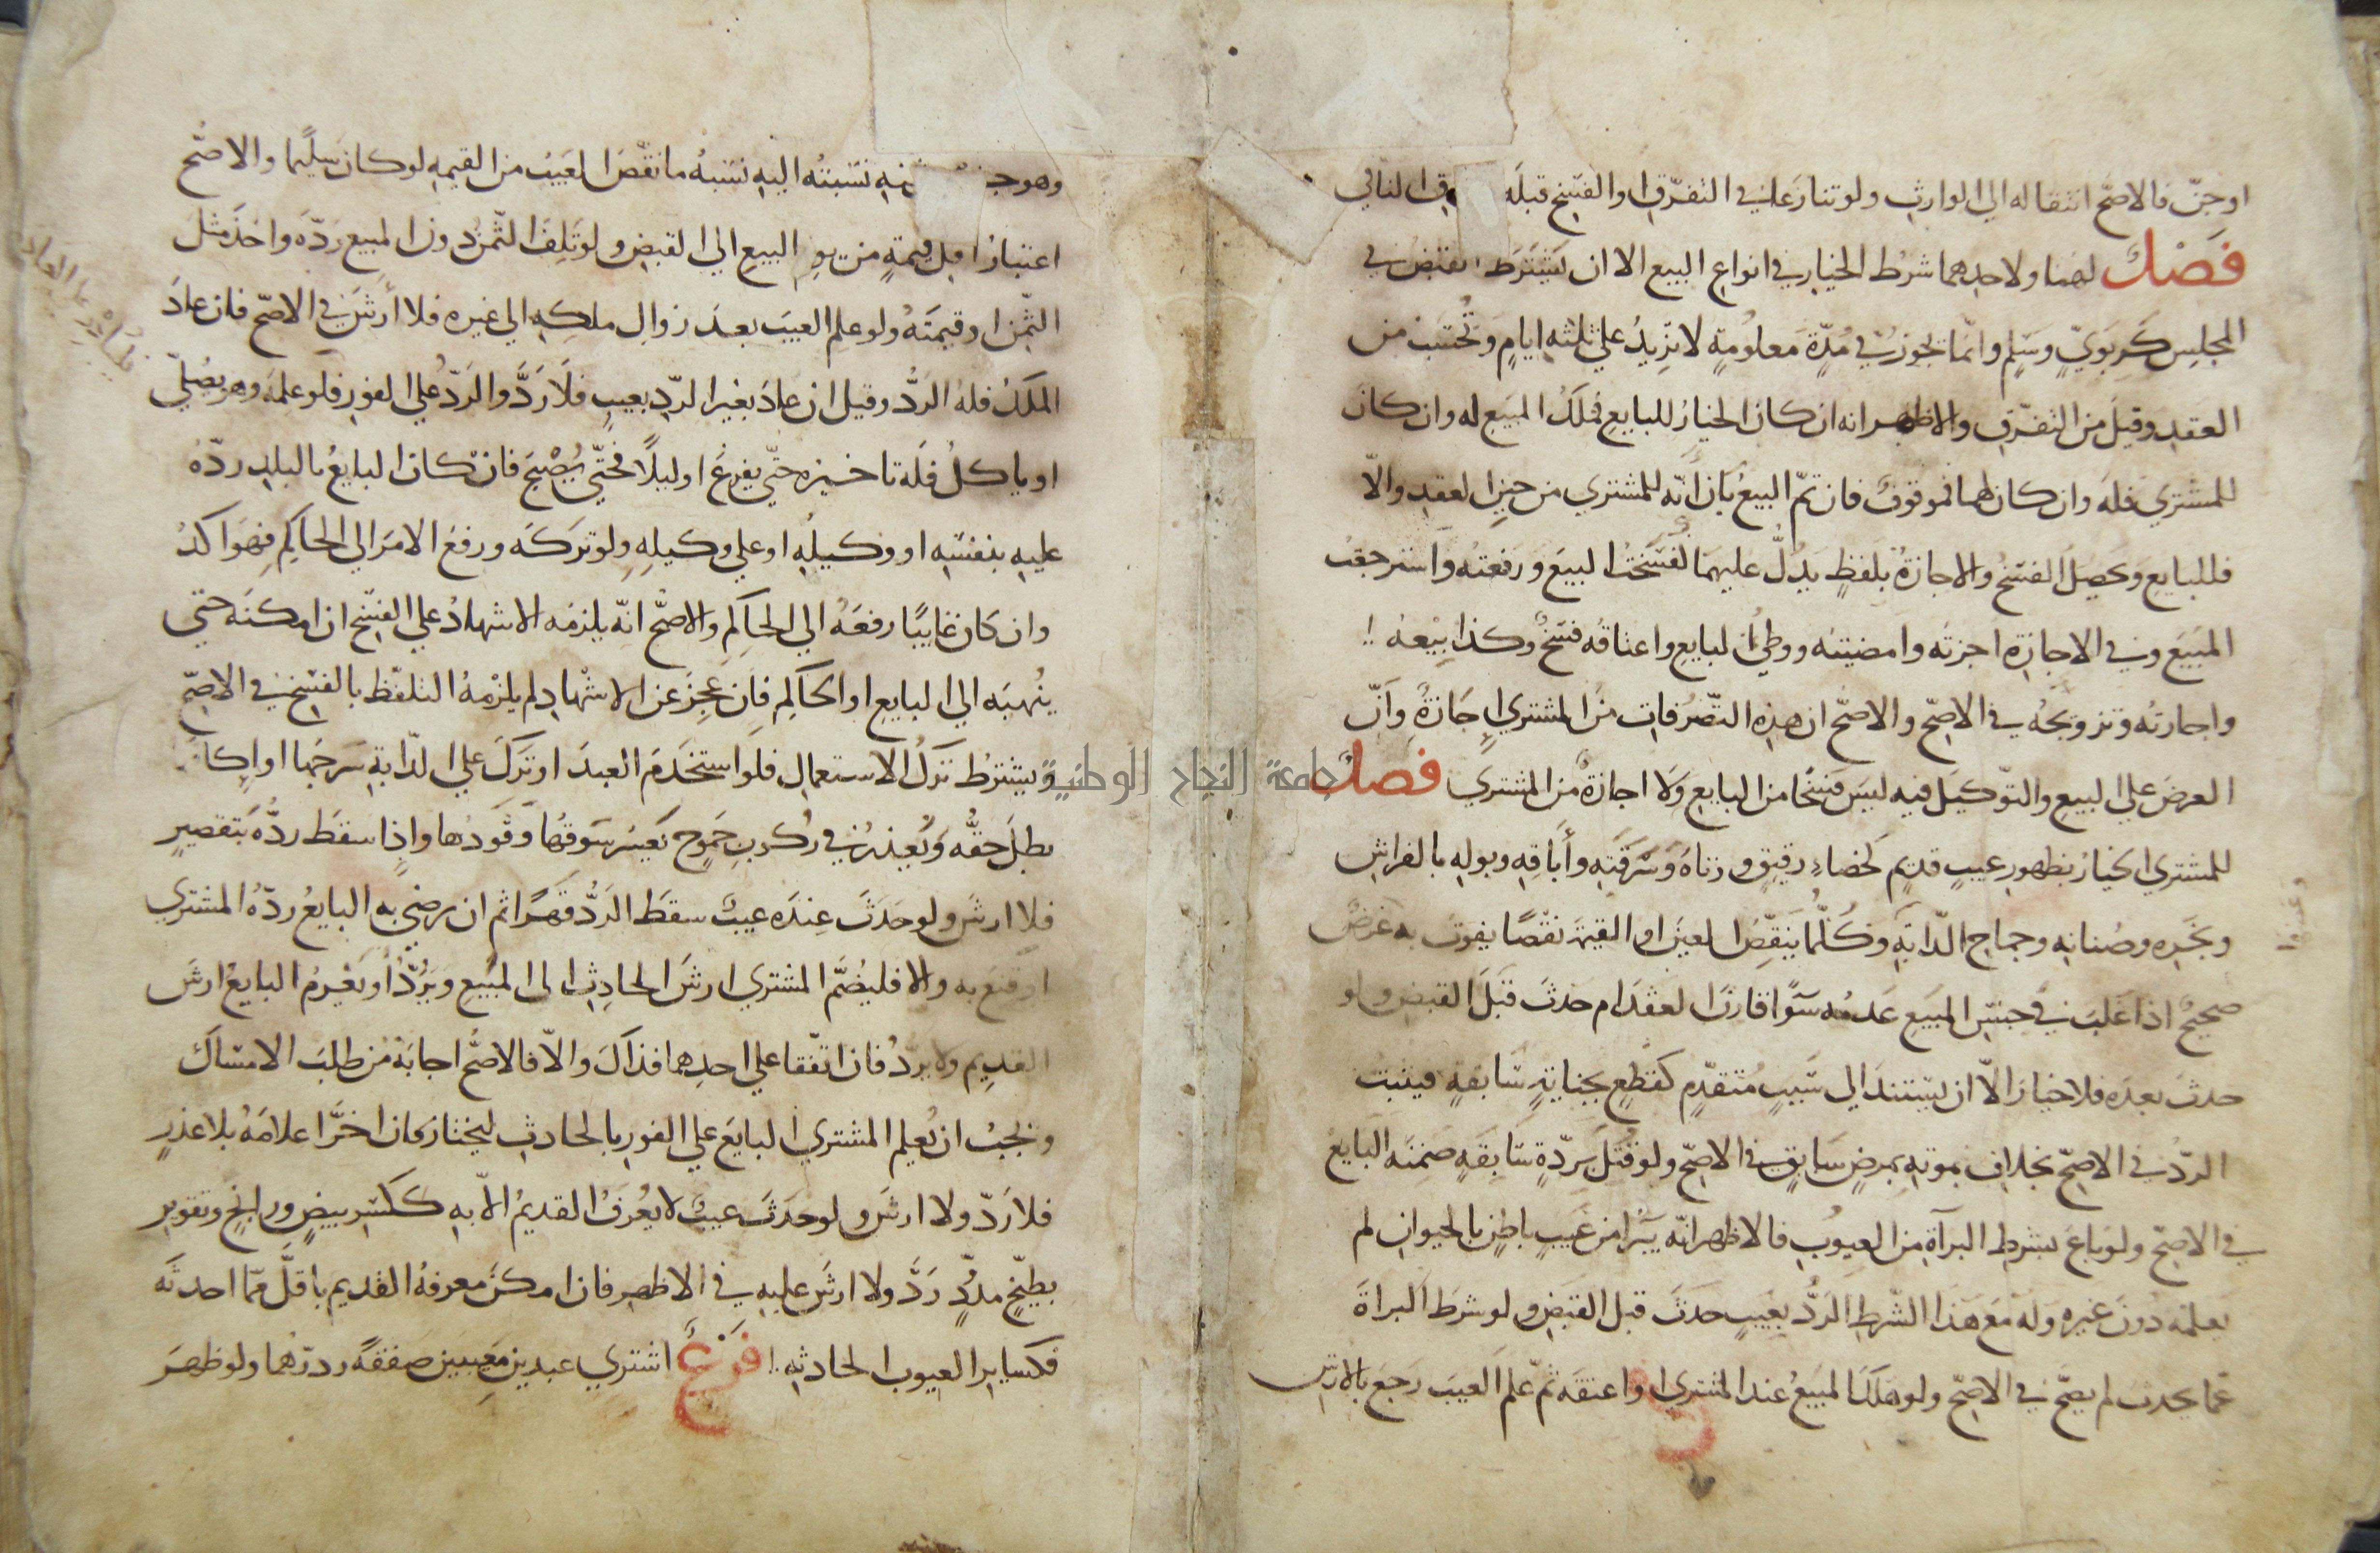 او جنّ فالاصحّ انتقاله الي الوارث ولو تنازعا في التفرّق او الفسخ قبله النافي
فصل لهما ولاحدهما شرط الخيار في انواع البيع الا ان يشترط القبض في
المجلس كربويّ وسلم وانّما يجوز في مدّة معلومة لا تزيد علي ثلثه ايام وتحسب من
العقد وقيل من التفرّق والاظهر انه ان كان الخيار للبايع فملك المبيع له وان كان
للمشتري فله وان كان لهما فموقوف فان تمّ البيع بان انّه للمشتري من حين العقد والّا
فللبايع ويحصل الفسخ والاجازة بلفظ يدلّ عليهما لفسخت البيع ورفعته واسترجعت
المبيع وفي الاجازة اجزته وامضيته ووطئ البايع واعتاقه فسخ وكذا بيعه
واجارته وتزويجه في الاصحّ والاصحّ ان هذه التصرفات من المشتري اجازة وانّ
العرض علي البيع والتوكيل فيه ليس فسخا من البايع ولا اجازة من المشتري فصل
للمشتري الخيار بظهور عيب قديم كخصاء رقيق وزناه وسرقته وأباقه وبوله بالفراش
وبخره وصنانه وجماح الدّابة وكلّما ينقص العين او القيمة نقصا يفوت به غرض
صحيح اذا غلب في جنس المبيع عدمه سوّا قارن العقد ام حدث قبل القبض ولو
حدث بعده فلا خيار الّا ان يستند الي سبب متقدّم كقطع بجناية سابقة فيثبت
الردّ في الاصحّ بخلاف موته بمرض سابق في الاصحّ ولو قتل بردّة سابقه ضمنه البايع
في الاصحّ ولو باع بشرط البرآة من العيوب فالاظهر انّه يبرا من عيب باطن بالحيوان لم
يعلمه دون غيره وله مع هذا الشرط الردّ بعيب حدث قبل القبض ولو شرط البراة
عما يحدث لم يصحّ في الاصحّ ولو هلك المبيع عند المشتري او اعتقه ثمّ علم العيب رجع بالارش
وهو جـ ـنه نسبته اليه نسبة ما نقص العيب من القيمه لو كان سليما والاصحّ
اعتبار اقل قيمة من يوم البيع الي القبض ولو تلف الثمن دون المبيع ردّه واخذ مثل
الثمن او قيمته ولو علم العيب بعد زوال ملكه الي غيره فلا أرش في الاصحّ فان عاد
الملك فله الردّ وقيل ان عاد بغير الردّ بعيب فلا ردّ والردّ علي الفور فلو علمه وهو يصلّي
او ياكل فله تاخيره حتّي يفرغ او ليلًا فحتّي يصبح فان كان البايع بالبلد ردّه
عليه بنفسه او وكيله او علي وكيله ولو تركه ورفع الامر الي الحاكم فهو اكد
وان كان غايبا رفعه الي الحاكم والاصحّ انّه يلزمه الاشهاد علي الفسخ ان امكنه حتي
ينهيه الي البايع او الحاكم فان عجز عن الاشهاد لم يلزمه التلفظ بالفسخ في الاصحّ
ويشترط ترك الاستعمال فلو استخدم العبد او ترك علي الدّابة سرجها او اكا
بطل حقّه ويعذر في ركوب جموح يعسر سوقها وقودها واذا سقط ردّه بتقصير
فلا ارش ولو حدث عنده عيب سقط الردّ قهرا ثم ان رضي به البايع ردّه المشتري
او قنع به والا فليضمّ المشتري ارش الحادث الى المبيع ويردّ او يغرم البايع ارش
القديم ولا يردّ فان اتّفقا علي احدهما فذاك والّا فالاصحّ اجابة من طلب الامساك
ويجب ان يعلم المشتري البايع علي الفور بالحادث ليختار فان اخّر اعلامه بلا عذر
فلا ردّ ولا ارش ولو حدث عيب لا يعرف القديم الّا به ككسر بيض ورانج وتقوير
بطيخ مدوّد ردّ ولا ارش عليه في الاظهر فان امكن معرفة القديم باقلّ ممّا احدثه
فكساير العيوب الحادثه فرع اشتري عبدين معيبين صفقة ردّهما ولو ظهر
جامعة النجاح الوطنية